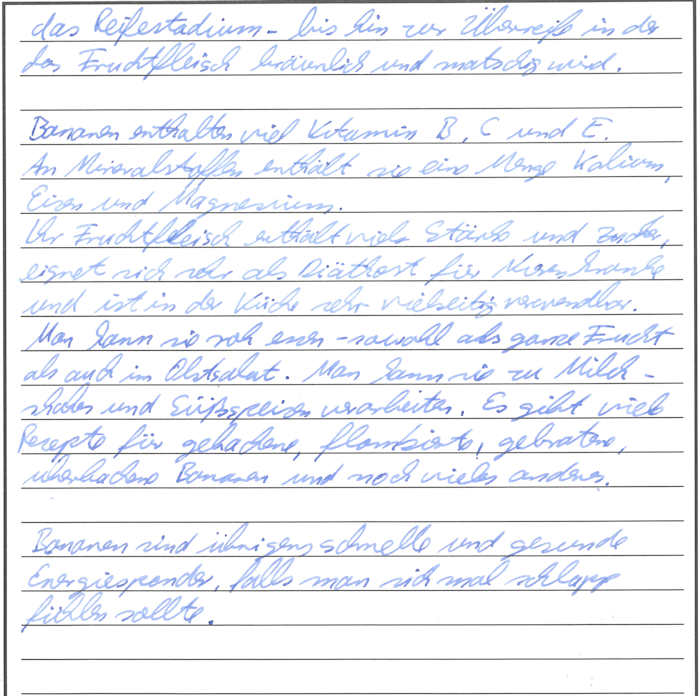 das Reifestadium - bis hin zur Überreife in der
das Fruchtfleisch bräunlich und matschig wird.
Bananen enthalten viel Vitamin B, C und E.
An Mineralstoffen enthält sie eine Menge Kalium,
Eisen und Magnesium.
Ihr Fruchtfleisch enthält viele Stärke und Zucker,
eignet sich sehr als Diätkost für Nierenkranke
und ist in der Küche sehr vielseitig verwendbar.
Man kann sie roh essen - sowohl als ganze Frucht
als auch im Obstsalat. Man kann sie zu Milch-
shakes und Süßspeisen verarbeiten. Es gibt viele
Rezepte für gebackene, flambierte, gebratene,
überbackene Bananen und noch vieles anderes.
Bananen sind übrigens schnelle und gesunde
Energiespender, falls man sich mal schlapp
fühlen sollte.